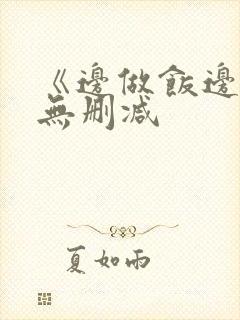 《邊做飯邊
無刪減
夏如雨